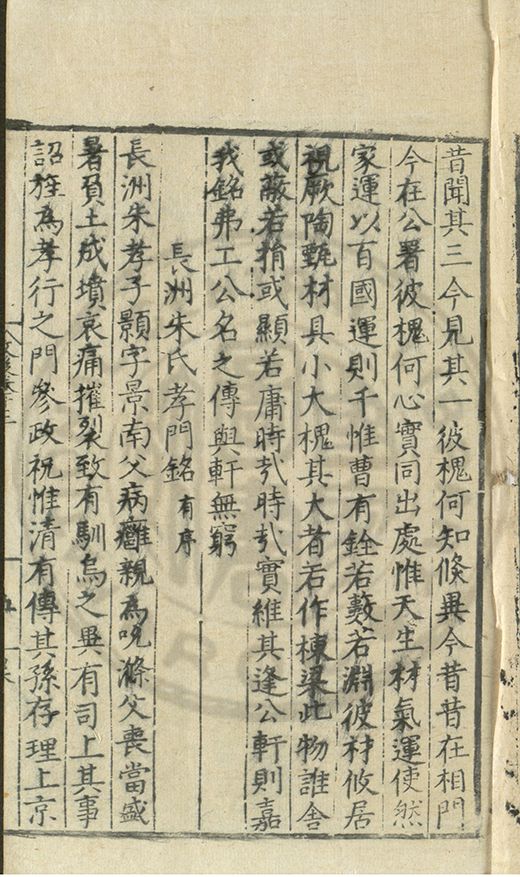 昔聞其三今見其一彼槐何知倐異今昔昔在相門
今在公署彼槐何心實同出處惟天生材氣運使然
家運以百國運則千惟曹有銓若藪若淵彼材攸居
視厥陶甄材具小大槐其大者若作棟梁此物誰舍
或蔽若捐或顯若庸時㢤時㢤實維其逢公軒則嘉
我銘弗工公名之傳與軒無窮
長洲朱氏孝門銘有序
長洲朱孝子顥字景南父病癰親為吮滌父喪當盛
暑負土成墳哀痛摧裂致有馴烏之異有司上其事
詔旌為孝行之門參政祝惟清有傳其孫存理上京